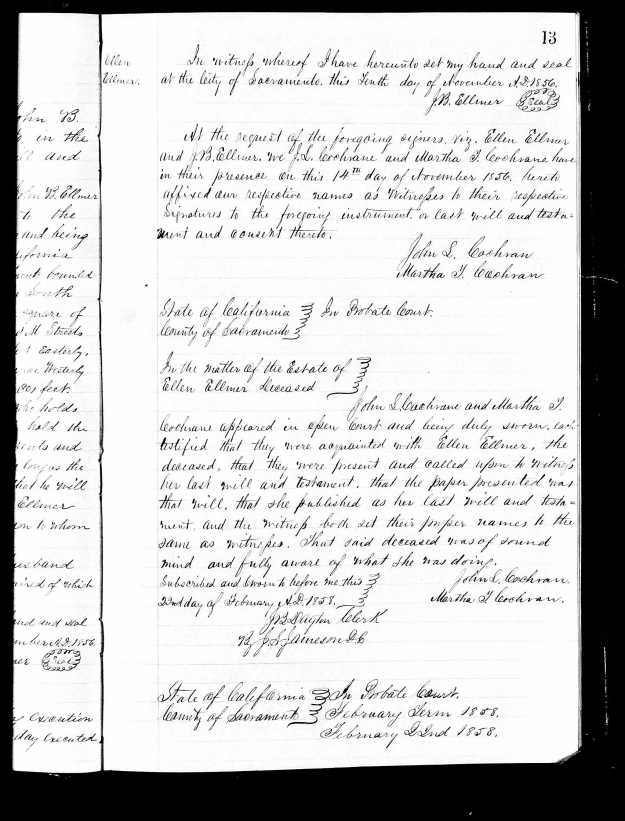 13
Ellen
Ellmer.
In witness whereof I have hereunto set my hand and seal
at the City of Sacramento. this Tenth day of November A.D. 1856.
J.B. Ellmer Seal
At the request of the foregoing signers. viz. Ellen Ellmer
and J.B. Ellmer. we J.L. Cochrane and Martha T. Cochrane have
in their presence on this 14th day of November 1856. hereto
affixed our respective names as Witnesses to their respective
Signatures to the foregoing instrument or last will and testa-
ment and consent thereto.
John L. Cochran
Martha T. Cochran
State of California
County of Sacramento
In Probate Court.
In the matter of the Estate of
Ellen Ellmer Deceased
John L. Cochrane and Martha T.
Cochrane appeared in open Court and being duly sworn. each
testified that they were acquainted with Ellen Ellmer, the
deceased, that they were present and called upon to witness
her last will and testament, that the paper presented was
that will, that she published as her last will and testa-
ment. and the witness both set their proper names to the
same as witnesses. That said deceased was of sound
mind and fully aware of what she was doing.
Subscribed and sworn to before me this
22nd day of February A.D. 1858.
John L. Cochran.
Martha T Cochran.
Clerk
By J.S. Jameson D.C
State of California
County of Sacramento
In Probate Court.
February Term 1858.
February 22nd 1858.
John B.
in the
and
John B. Ellmer
to the
and being
bounded
South
square of
M Streets
Easterly.
Westerly
feet.
who holds
hold the
and
longus the
that he will
Ellmer
to whom
husband
of which
and seal
November A.D. 1856
Seal
execution
day executed